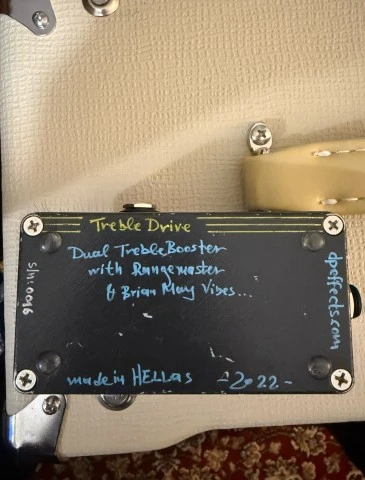 Treble Drive
Dual TrebleBooster
with Rangemaster
& Brian May Vibes...
made in HELLAS -2022-
s/n: 0096
dpeffects.com